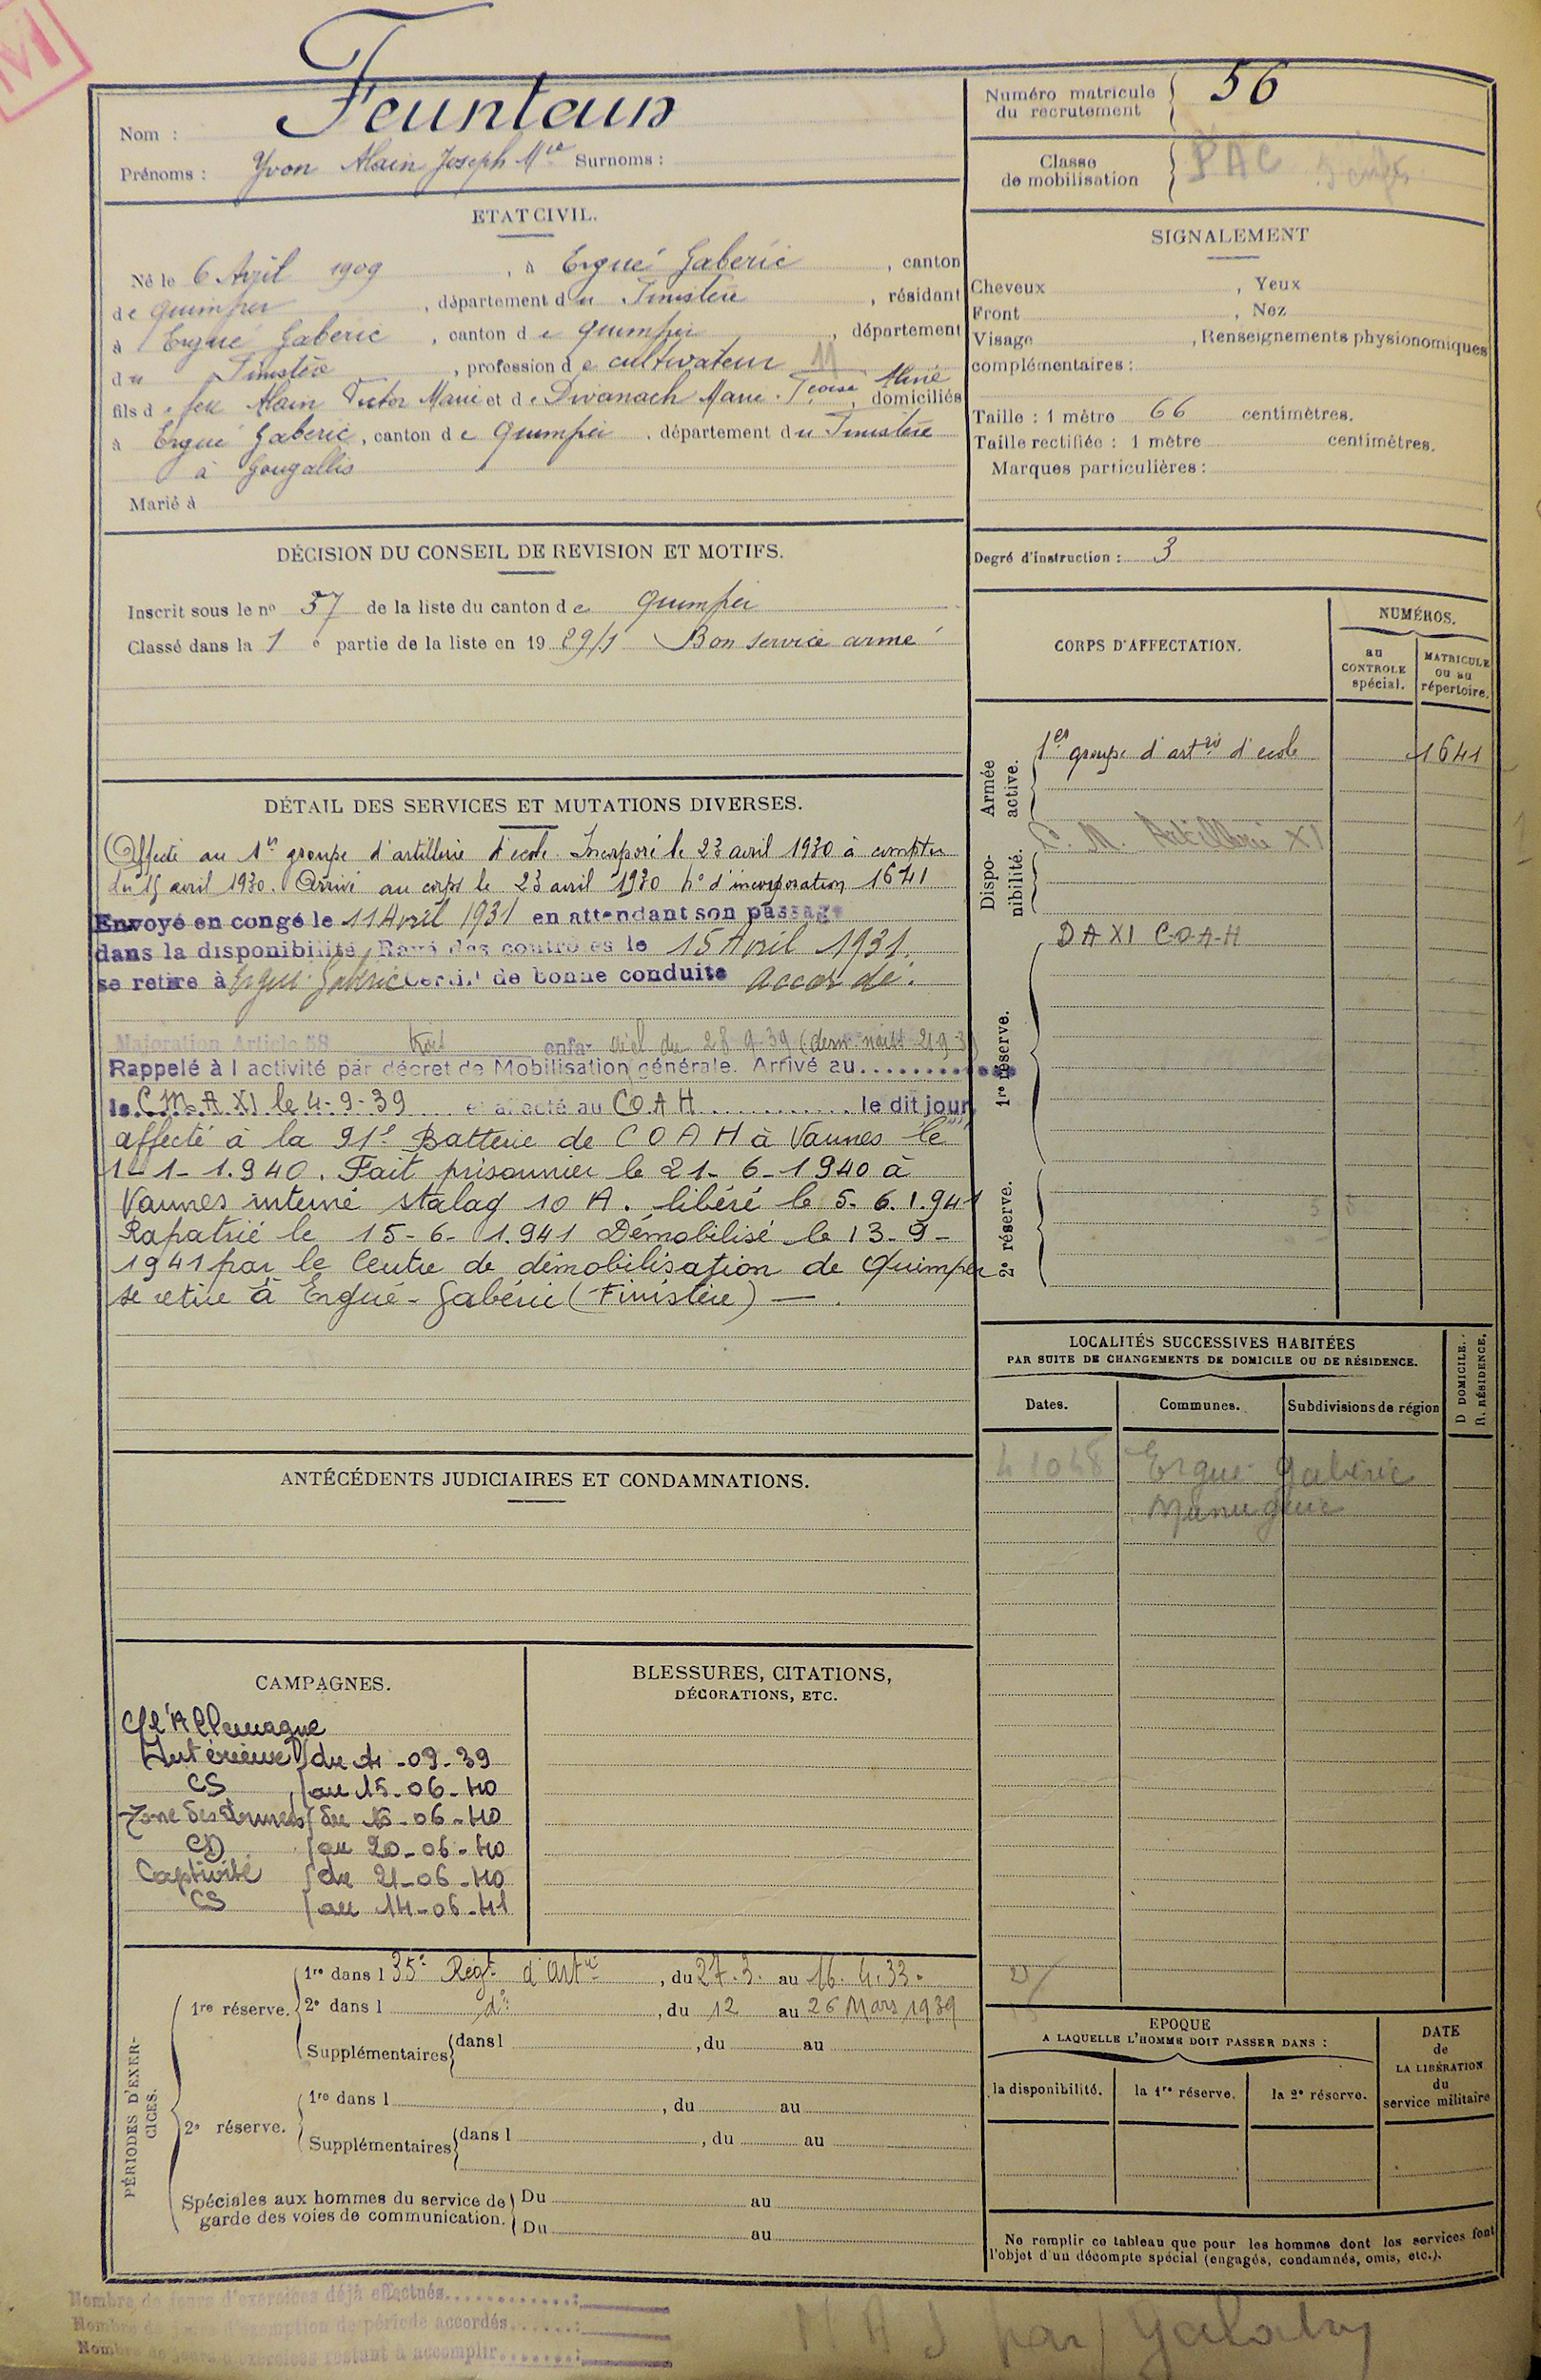 M
Nom : Feunteun
Prénoms : Yvon Alain Joseph Mie Surnoms :
ETAT CIVIL.
Né le 6 Avril 1909, à Ergué Gaberic, canton
de Quimper, département du Finistère, résidant
à Ergué Gaberic, canton de Quimper, département
du Finistère, profession de cultivateur 11
fils de feu Alain Victor Marie et de Divanach Marie Aliné, domiciliés
à Ergué Gaberic, canton de Quimper, département du Finistère
à Gougallis
Marié à
DÉCISION DU CONSEIL DE REVISION ET MOTIFS.
Inscrit sous le no 37 de la liste du canton de Quimper
Classé dans la 1 e partie de la liste en 19 29/1 Bon service armé
DÉTAIL DES SERVICES ET MUTATIONS DIVERSES.
Affecté au 1er groupe d'artillerie d'école. Incorporé le 23 avril 1930 à compter
du 15 avril 1930. Arrivé au corps le 23 avril 1930 No d'incorporation 1641
Envoyé en congé le 11 Avril 1931 en attendant son passage
dans la disponibilité. Rayé des contrôles le 15 Avril 1931.
se retire à Ergué Gabéric Certif. de bonne conduite accordé.
Majoration Article 58 trois enfa. (dern. naiss. 21-9-3
Rappelé à l activité par décret de Mobilisation générale. Arrivé au..........
le C M A XI le 4-9-39 et affecté au C O A H ............ le dit jour
affecté à la 91e Batterie de C O A H à Vannes le
1-1-1.940. Fait prisonnier le 21-6-1940 à
Vannes interné stalag 10 A. libéré le 5-6.1.941
Rapatrié le 15-6-1.941 Démobilisé le 13-9-
1941 par le Centre de démobilisation de Quimper
se retire à Ergué-Gabéric (Finistère) — .
ANTÉCÉDENTS JUDICIAIRES ET CONDAMNATIONS.
CAMPAGNES.
C/ l'Allemagne
Intérieur du 4-09-39
CS au 15-06-40
Zone des Armées du 16-06-40
CD au 20-06-40
Captivité du 21-06-40
CS au 14-06-41
BLESSURES, CITATIONS,
DÉCORATIONS, ETC.
PÉRIODES D'EXER-
CICES.
1re réserve.
1re dans l 35e Régt d'Artie, du 27.3. au 16.4.33.
2e dans l do, du 12 au 26 Mars 1939
Supplémentaires dans l , du au
2e réserve.
1re dans l , du au
Supplémentaires dans l , du au
Spéciales aux hommes du service de
garde des voies de communication.
Du au
Du au
Nombre de jours d'exercices déjà effectués.............:
Nombre de jours d'exemption de période accordés......:
Nombre de jours d'exercices restant à accomplir.......:
Numéro matricule
du recrutement
56
Classe
de mobilisation
PAC
SIGNALEMENT
Cheveux , Yeux
Front , Nez
Visage , Renseignements physionomiques
complémentaires :
Taille : 1 mètre 66 centimètres.
Taille rectifiée : 1 mètre centimètres.
Marques particulières :
Degré d'instruction : 3
CORPS D'AFFECTATION.
NUMÉROS.
au
CONTROLE
spécial.
MATRICULE
ou au
répertoire.
Armée
active.
1er groupe d'artrie d'école 1641
Dispo-
nibilité.
C. M. Artillerie XI
D A XI C-O-A-H
1re réserve.
2e réserve.
LOCALITÉS SUCCESSIVES HABITÉES
PAR SUITE DE CHANGEMENTS DE DOMICILE OU DE RÉSIDENCE.
D DOMICILE.
R. RÉSIDENCE.
Dates.
Communes.
Subdivisions de région
4 10 48 Ergué Gabéric
EPOQUE
A LAQUELLE L'HOMME DOIT PASSER DANS :
la disponibilité.
la 1re réserve.
la 2e réserve.
DATE
de
LA LIBÉRATION
du
service militaire
Ne remplir ce tableau que pour les hommes dont les services font
l'objet d'un décompte spécial (engagés, condamnés, omis, etc.).